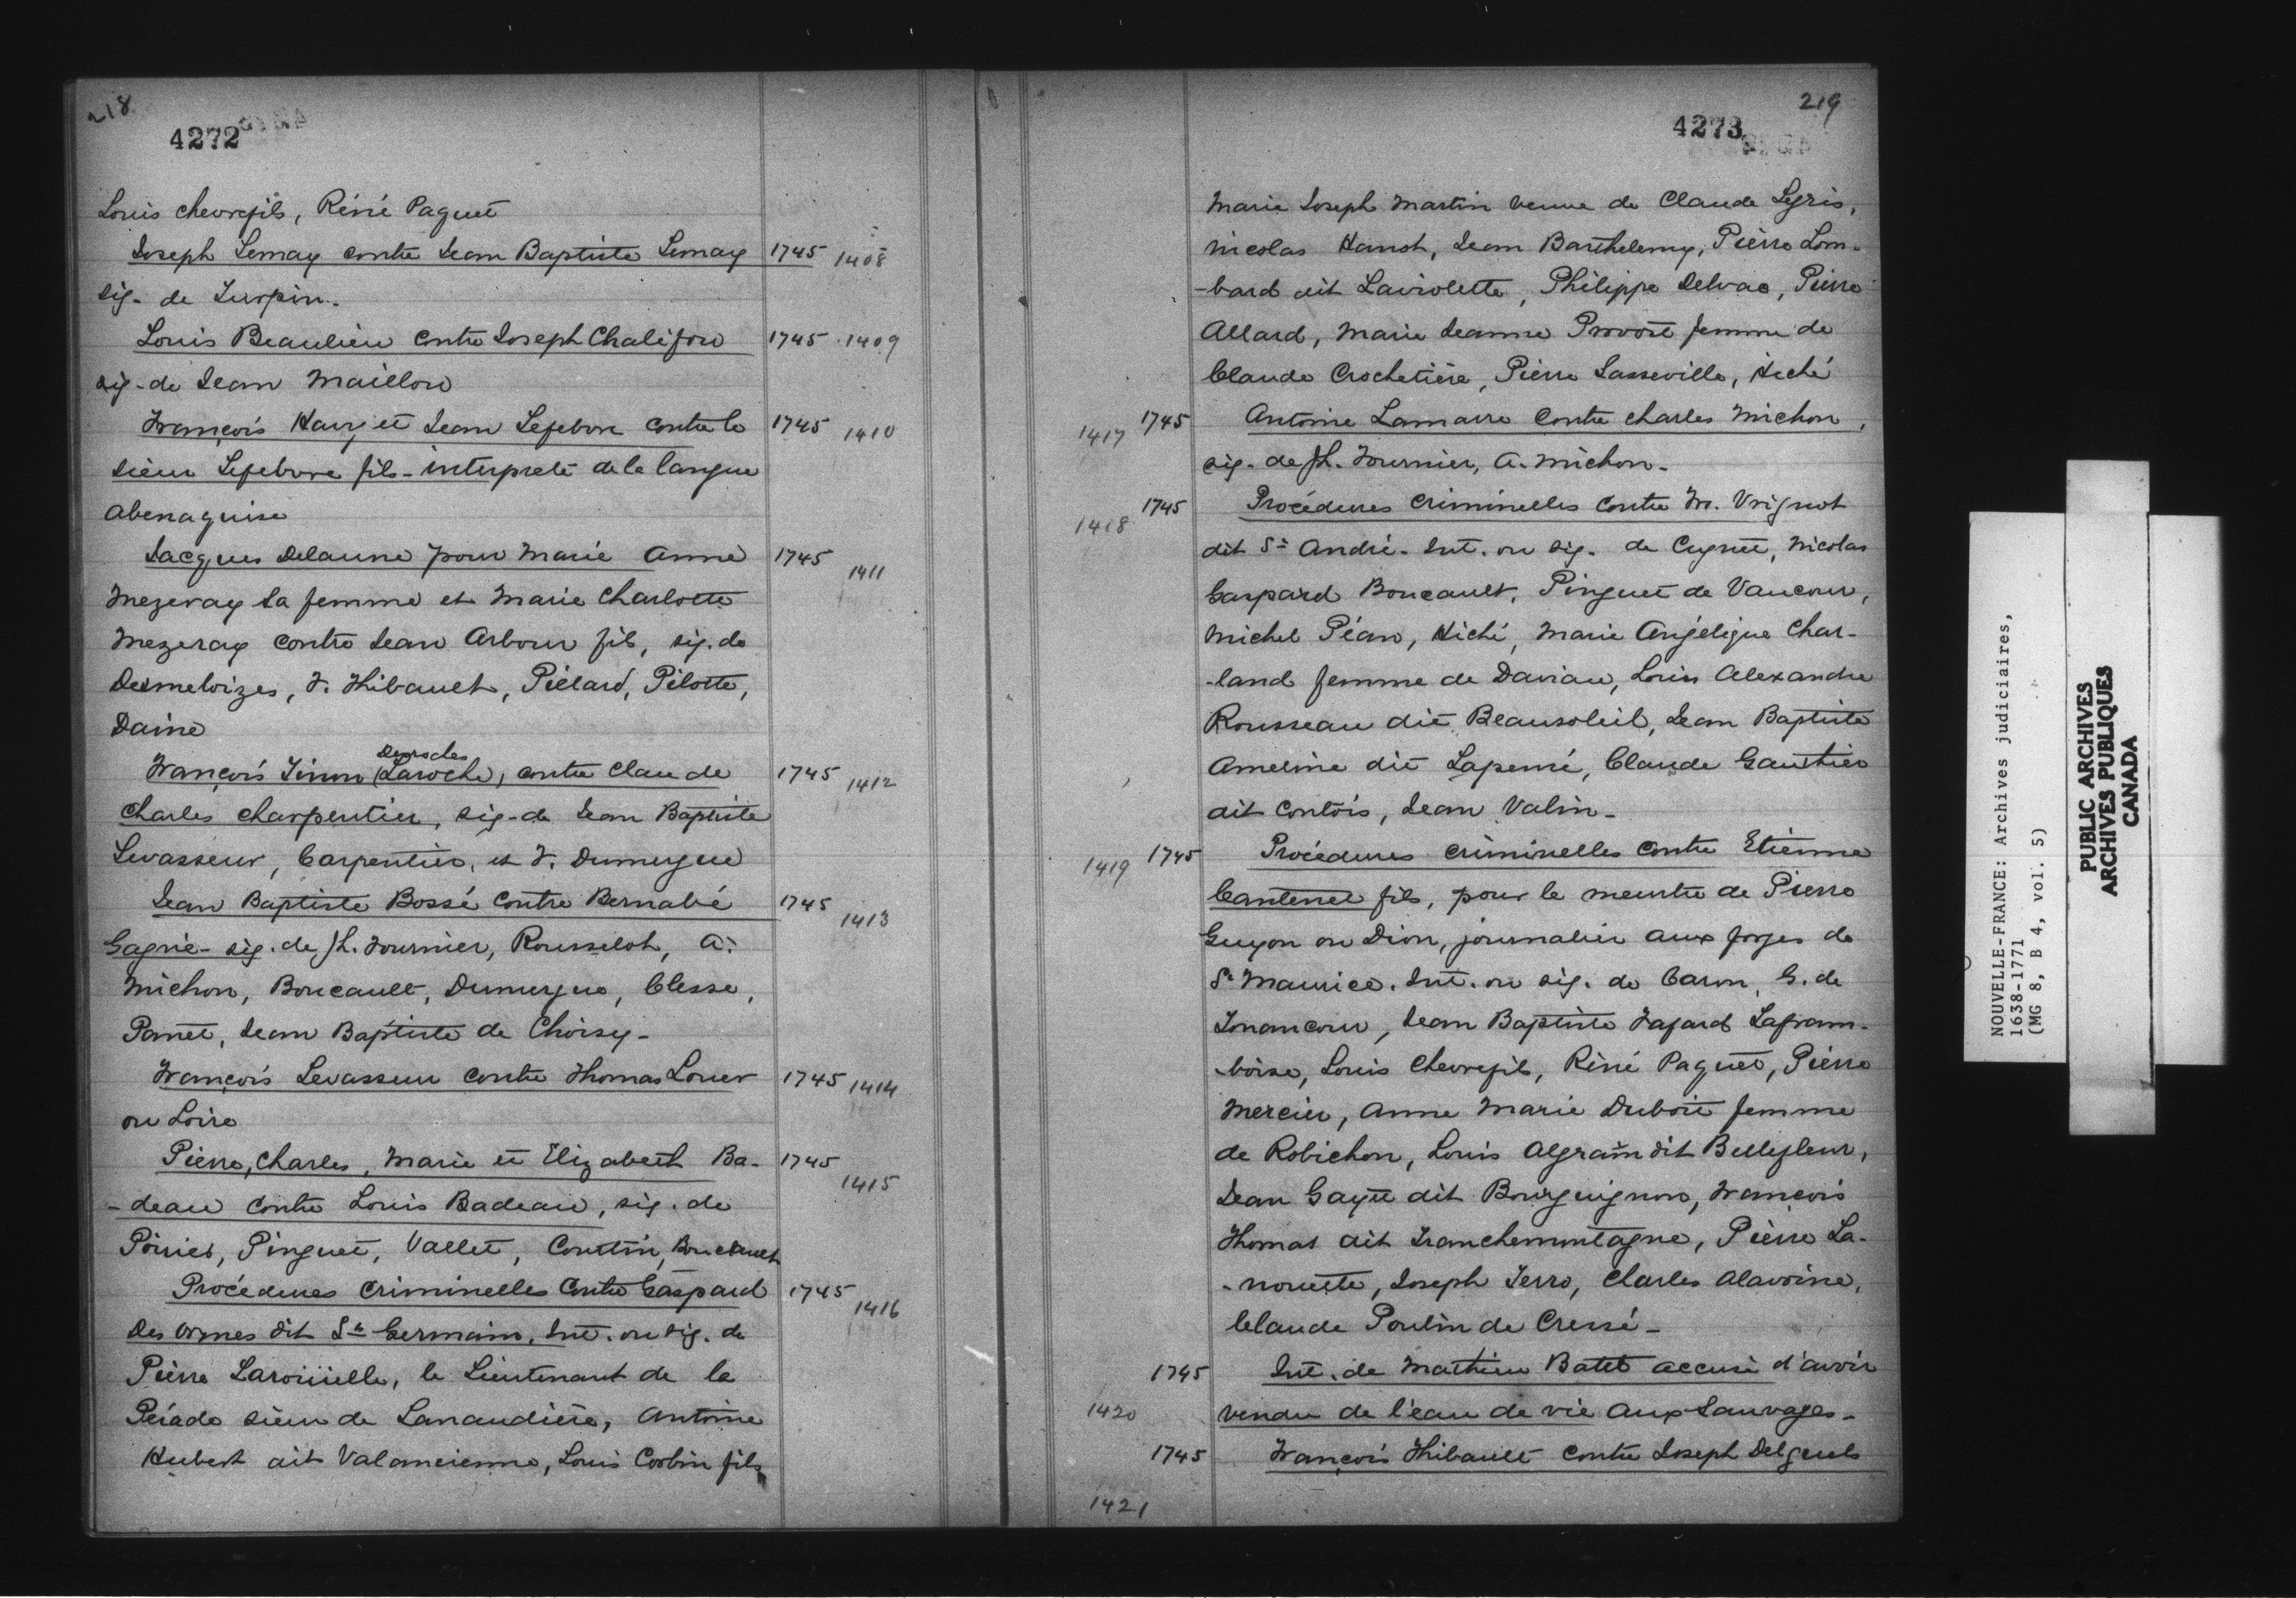 218
4272
Louis chevrefils, Réné Paquet
Joseph Lemay contre Jean Baptiste Lemay 1745 1408
sig. de Turpin.
Louis Beaulieu contre Joseph Chalifou 1745 1409
sig. de Jean Maillou
François Hary et Jean Lefebvre contre le 1745 1410
sieur Lefebvre fils - interprete de la langue
abenaquise
Jacques Delaune pour Marie Anne 1745 1411
Mezeray sa femme et Marie Charlotte
Mezeray contre Jean Arbour fils, sig. de
Desmeloizes, F. Thibault, Piélard, Pilotte,
Daine
Desroches
François Tinon (Laroche) contre Claude 1745 1412
Charles Charpentier, sig. de Jean Baptiste
Levasseur, Carpentier, et F. Dumergue
Jean Baptiste Bossé contre Bernabé 1745 1413
Gagné - sig. de Jh. Fournier, Rousselot, A.
Michon, Boucault, Dumergue, Clesse,
Panet, Jean Baptiste de Choisy -
François Levasseur contre Thomas Louer 1745 1414
ou Loire
Pierre, Charles, Marie et Elizabeth Ba- 1745 1415
-deau contre Louis Badeau, sig. de
Poirier, Pinguet, Vallet, Coutin, Boucault
Procédures criminelles contre Gaspard 1745 1416
Des Ormes dit St Germain, Int. ou sig. de
Pierre Laroüielle, le Lieutenant de la
Pérade sieur de Lanaudière, Antoine
Hubert dit Valancienne, Louis Corbin fils
219
4273
Marie Joseph Martin veuve de Claude Legris,
Nicolas Hanot, Jean Barthelemy, Pierre Lom-
-bard dit Laviolette, Philippe Delvac, Pierre
Allard, Marie Jeanne Provost femme de
Claude Crochetière, Pierre Lasseville, Hiché
1417 1745 Antoine Lamarre contre Charles Michon,
sig. de Jh. Fournier, A. Michon.
1418 1745 Procédures criminelles contre Fr. Vrignot
dit St André. Int. ou sig. de Cugnet, Nicolas
Gaspard Boucault, Pinguet de Vaucour,
Michel Péan, Hiché, Marie Angélique Char-
-land femme de Daviau, Louis Alexandre
Rousseau dit Beausoleil, Jean Baptiste
Ameline dit Lapensé, Claude Gauthier
dit Contois, Jean Valin -
1419 1745 Procédures criminelles contre Etienne
Cantenet fils, pour le meurtre de Pierre
Guyon ou Dion, journalier aux forges de
St Maurice. Int. ou sig. de Caron, G. de
Tonancour, Jean Baptiste Fafard Lafram-
-boise, Louis Chevrefils, Réné Paquet, Pierre
Mercier, Anne Marie Duboit femme
de Robichon, Louis Algrain dit Bellefleur,
Jean Gayet dit Bourguignon, François
Thomas dit Tranchemontagne, Pierre La-
-nouette, Joseph Terro, Charles Alavoine,
Claude Poulin de Cressé -
1420 1745 Int. de Mathieu Batet accusé d'avoir
vendu de l'eau de vie aux Sauvages -
1745 François Thibault contre Joseph Delguels
1421
NOUVELLE-FRANCE: Archives judiciaires,
1638-1771
(MG 8, B 4, vol. 5)
PUBLIC ARCHIVES
ARCHIVES PUBLIQUES
CANADA